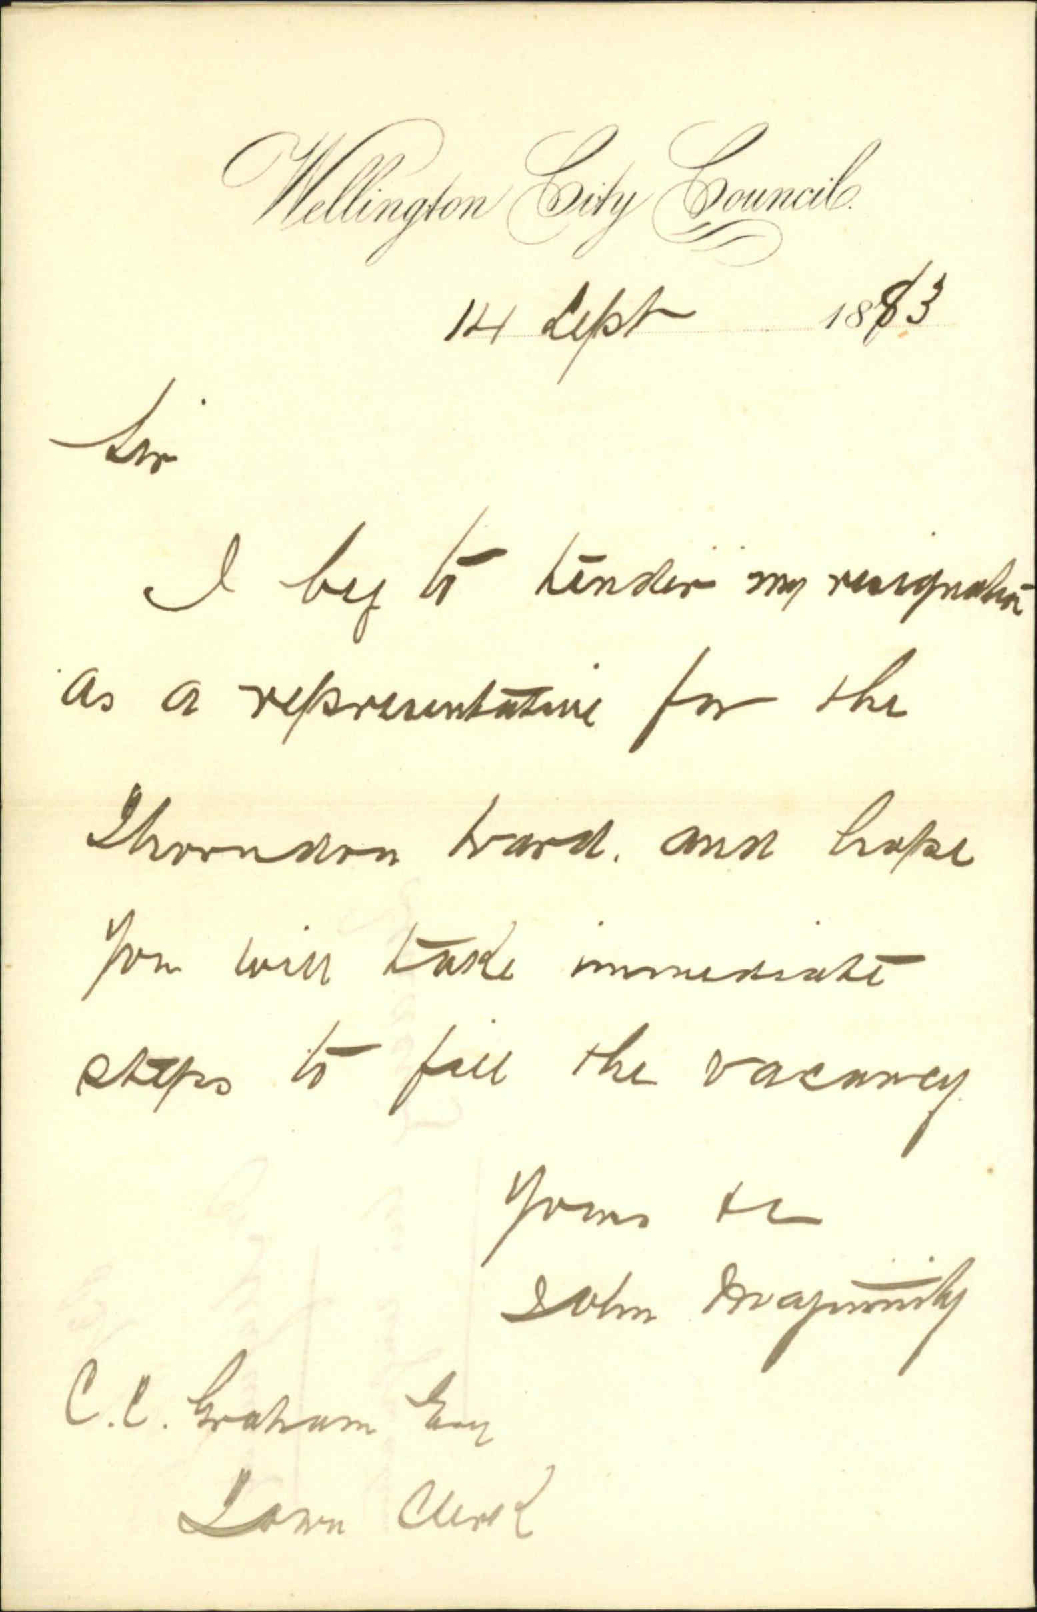 Wellington City Council.
14 Sept 1883
Sir
I beg to tender my resignation
as a representative for the
Thorndon Ward. and hope
you will take immediate
steps to fill the vacancy
Yours &c
John Maginnity
C.C. Graham Esq
Town Clerk